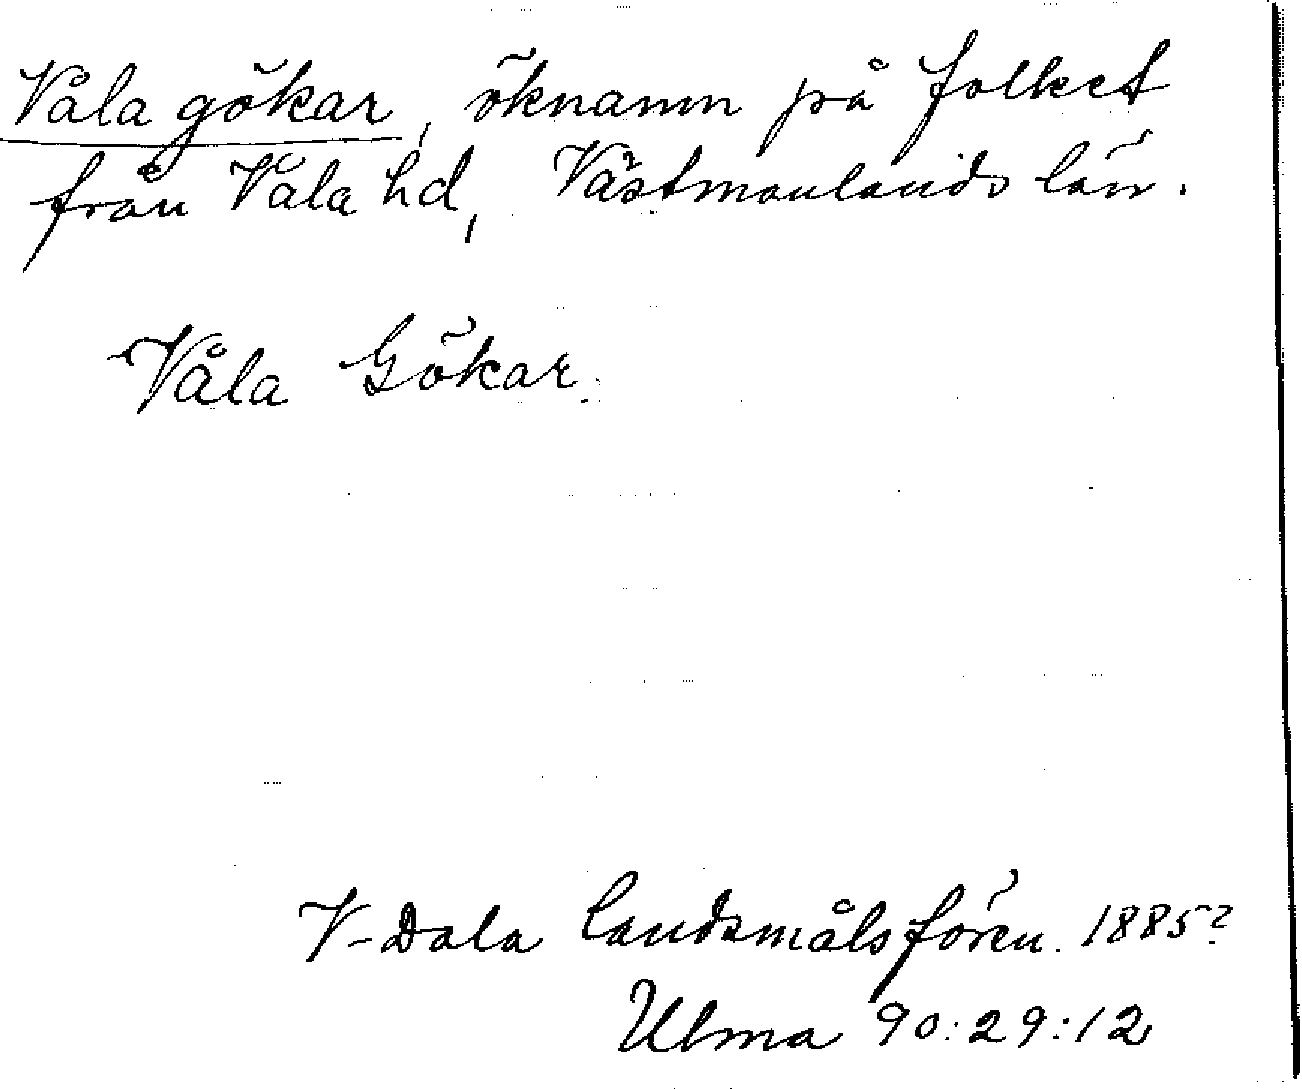 Våla gökar, öknamn på folket
från Våla hd, Västmanlands län.
Våla Gökar.
V-Dala landsmålsfören. 1885?
Ulma 90:29:12